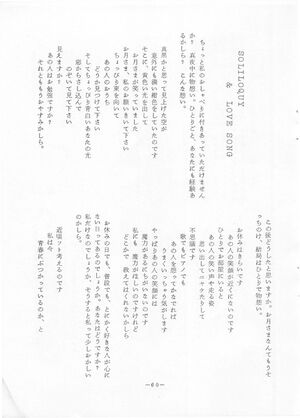 SOLILOQUY
& LOVE SONG
ちょっと私のおしゃべりに付きあっていただけません
か？ 真夜中に物想い。ひとりごと、あなたにも経験あ
るかしら。こんな想い。
真黒かと思って見上げた空が
意外にも濃い紺色をしていたので
そこに、黄色い光を出して
お月さまが笑っていました
お月さま、私のお願いきいて下さい
ちょっぴり東を向いて
あの人のおうち
どうか見つけて下さい
そしてちょっぴり青白いあなたの光
窓からさし込んで
のぞいて見て下さい
見えますか？
あの人はお勉強ですか？
それとももうおやすみかしら。
この後どうしたと思いますか。お月さまなんてもうそ
っちのけ、結局はひとりで物想い。
お休みはきらいです
あの人の笑顔が近くにないのです
ひとりでお部屋にいると
あの人の声や走る姿
思い出してニヤニヤたりして
不思議です
歌でもピアノでも
あの人を想ってかなでれば
うまくいっちゃう気がします
やっぱりあの人の笑顔にも
魔力があるにちがいないのです
私にも、魔力がほしいのですけれど
どこかで教えてはくれないかしら
お休みの日でも、普段でも、とにかく好きな人が心に
ない日ってあるのでしょうか。あなたはどうですか？
私だけなのでしょうか、そうすると私って少しおかしい
近頃フト考えるのです
私は今
青春にぶつかっているのか、と
—60—